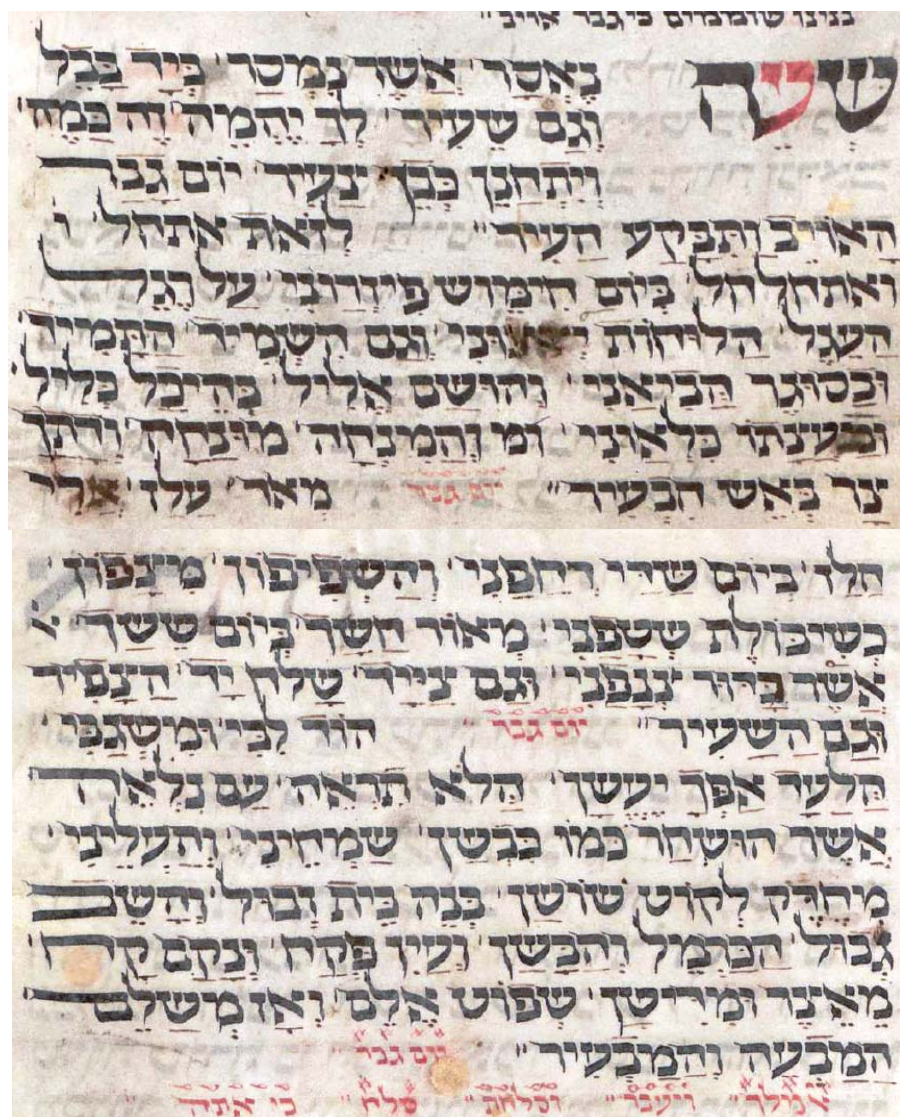 בנינו שוממים כי גבר אוייב"
שעה נאסר' אשר נמסר' ביד בבל
וגם שעיר' לך יהמה' זה כמה
ויתחנן' כבן צעיר' יום גבר
האוייב ותבקע העיר" לזאת אתחל'
ואתחלחל' ביום חימוש פיזרוני' על רגל
העגל' הלוחות וגם השמיד' התמיד'
ובסוגר הביאני' והושם אליל' בהיכל כליל'
ומעצתו כלאוני' והמנחה' מונחה'
צר באש הבעיר" יום גבר מאד'
ביום שדי והשפיפון' מיצפון'
כשיבולת שטפני' מאור חשך' ביום ששך'
אשר כדור צנפני' וגם צייד' שלח יד' הצפיר
וגם השעיר" יום גבר" הוד לבי ומשגבי'
הלעד אפך יעשן' הלא תראה' עם נלאה
אשר הושחר כמו כבשן'
מחדק לקוט שושן' בנה בית זבול' והשב
גבול' הכרמל' והבשן' ועין פקח' ונקם קח'
מאצר ומדישן' שפוט אלם' ואז משלם
המבעה והמבעיר" יום גבר"
ויעבר" וסלחת" סלח" כי אתה"